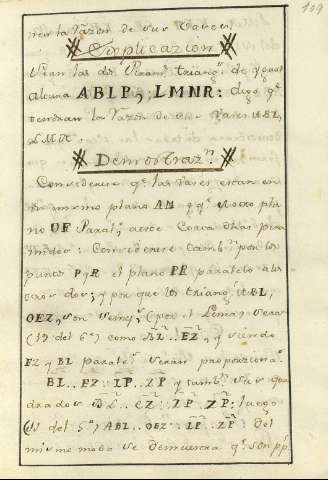 109
nen la razon de sus vases.
Explicacion
Sean las dos Piram.s triang.s de ygual
altura ABLP, y LMNR: digo q.e
tendran la razon de sus vases ABL,
LMN.
Demostraz.n
Considerese q.e las vases estan en
un mismo plano AN y q.e otro pla
no OF Paral.o a este corta dhas pira
mides: Considerese tamb.n por los
puntos P y R el plano PR paralelo a las
vas dos; y por que los triang.s ABL,
OEZ, son semej.s (por el Lema) sera
(19 del 6.o) como BL.. EZ; y siendo
EZ y BL paralel.s seran proporziona.s
BL.. EZ: LP.. ZP y tamb.n sus qua
drados BL.. EZ: LP.. ZP: luego
(11 del 5.o) ABL.. OEZ: LP.. ZP: del
mismo modo se demuestra q.e son pp.